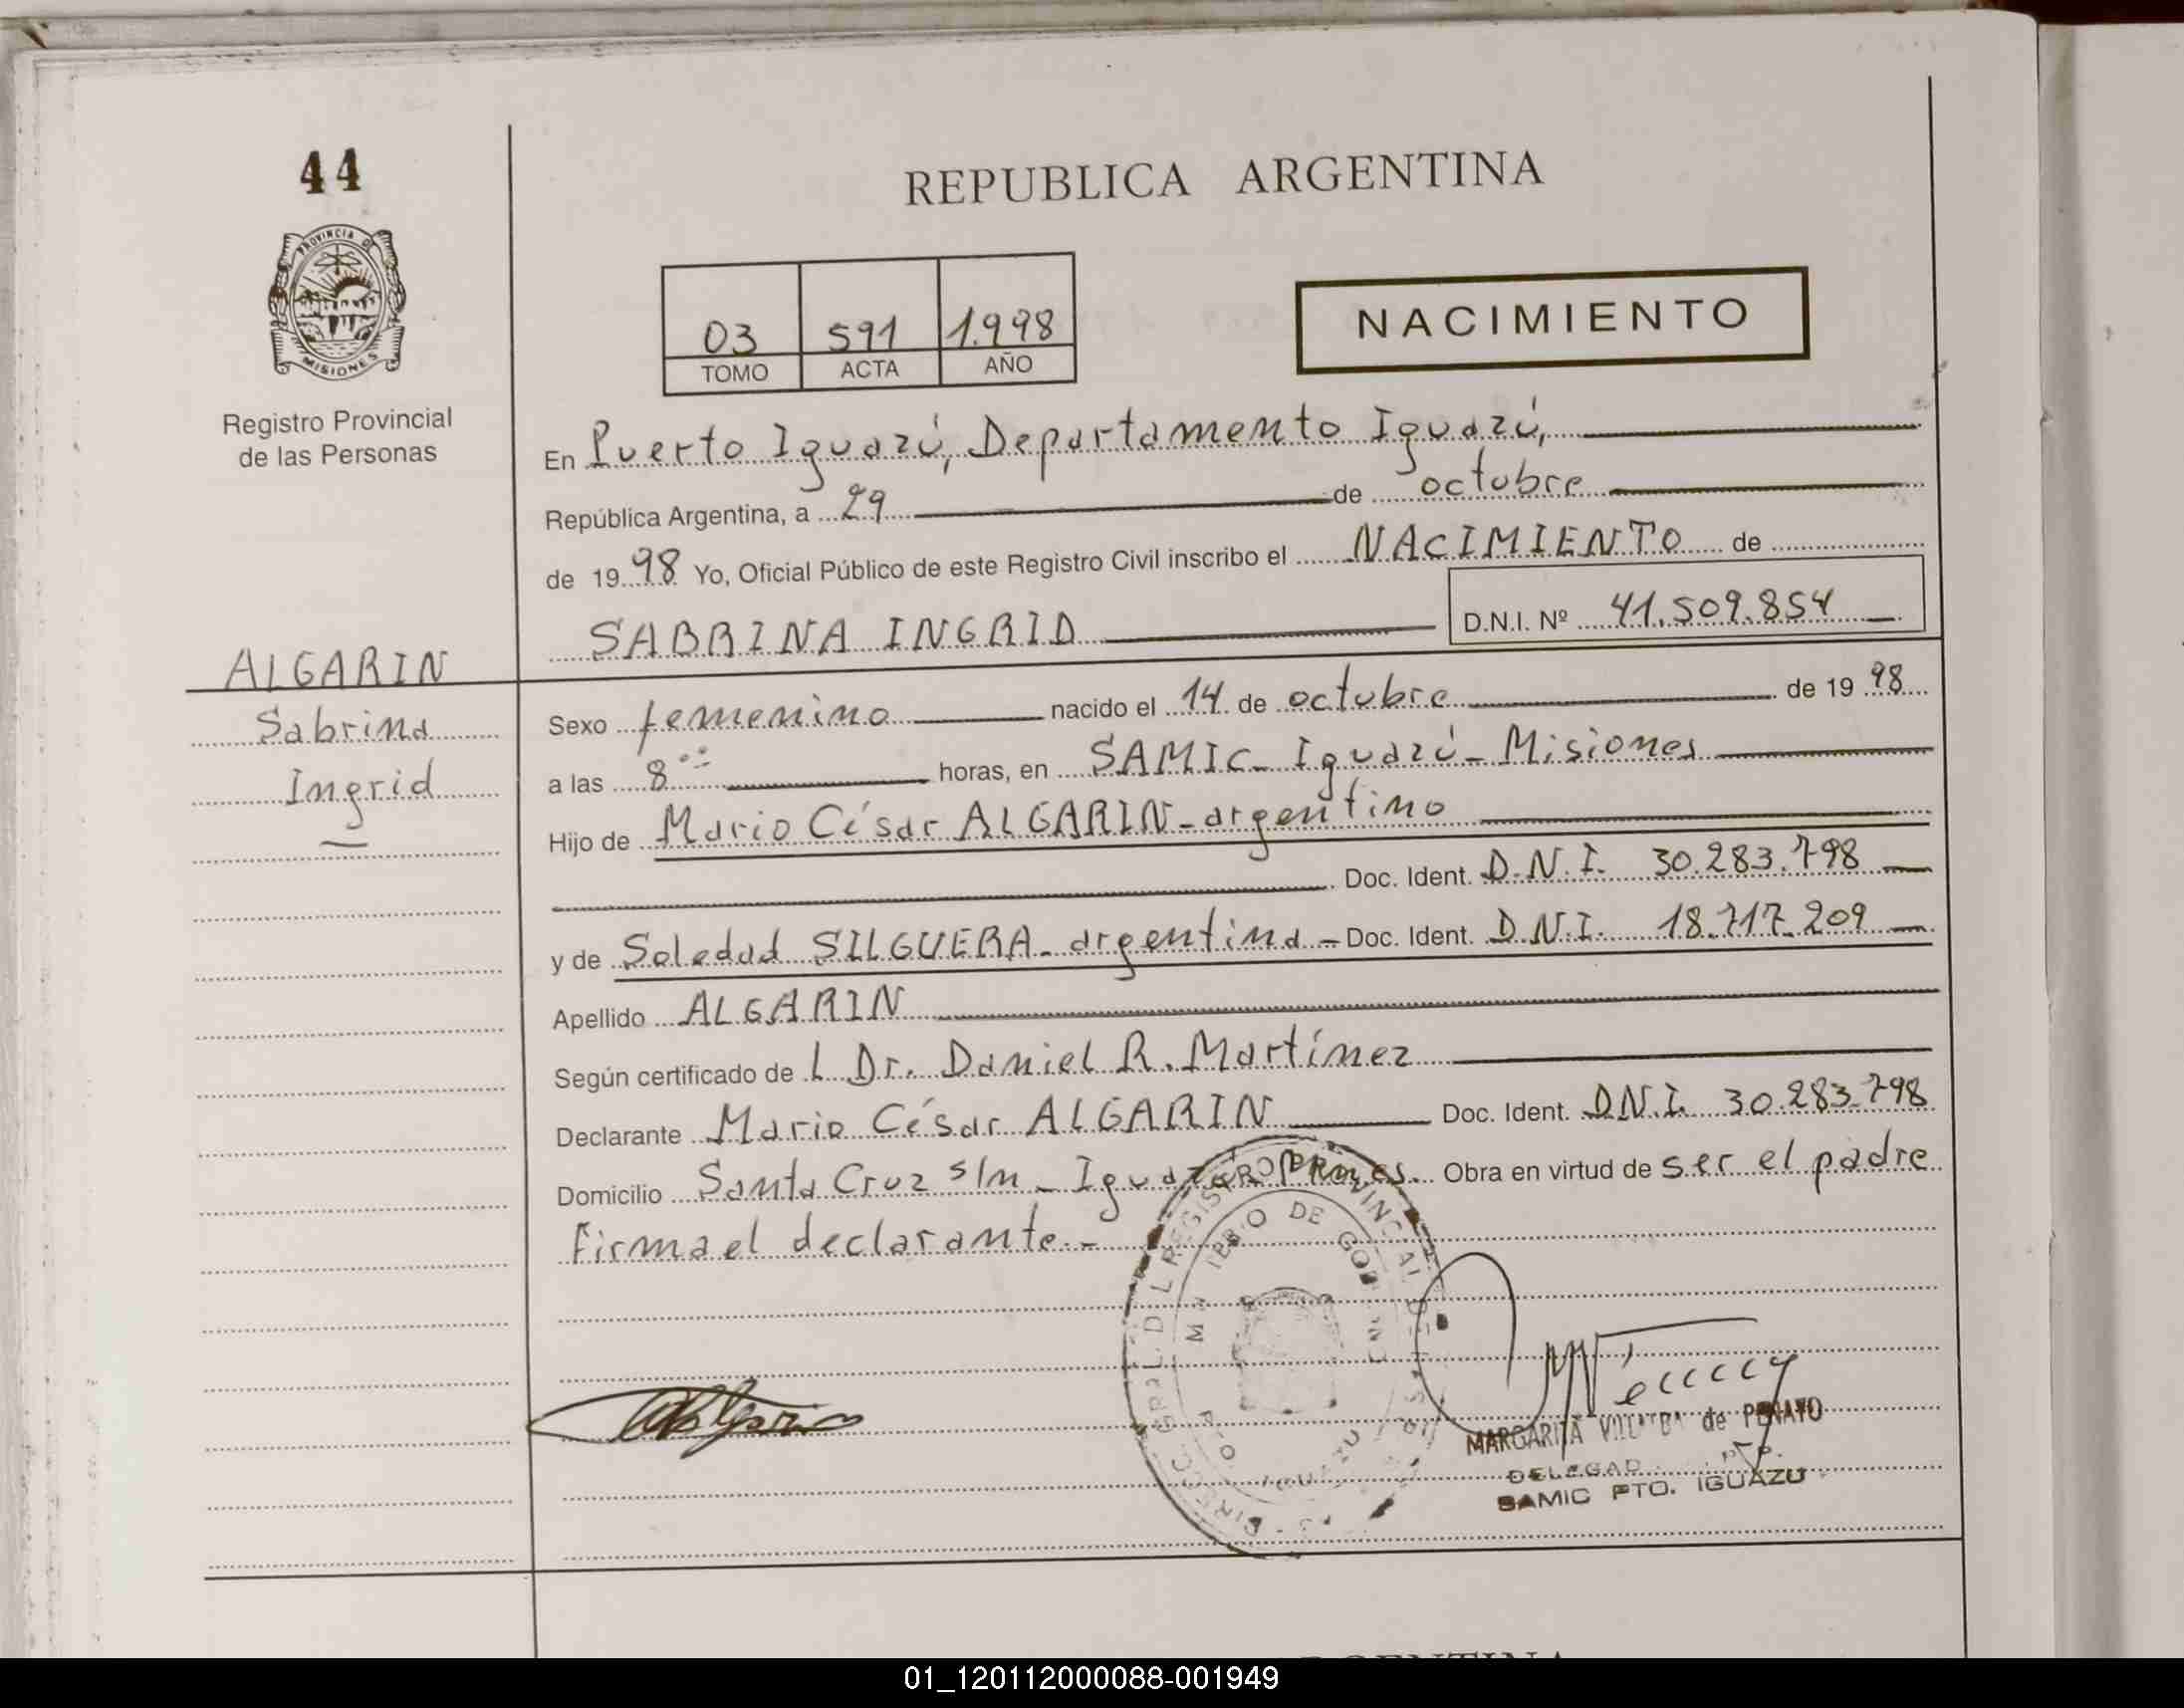 44
PROVINCIA DE
MISIONES
Registro Provincial
de las Personas
ALGARIN
Sabrina
Ingrid
REPUBLICA ARGENTINA
03 591 1.998
TOMO ACTA AÑO
NACIMIENTO
En Puerto Iguazú, Departamento Iguazú,
República Argentina, a 29 de octubre
de 1998 Yo, Oficial Público de este Registro Civil inscribo el NACIMIENTO de
SABRINA INGRID D.N.I. Nº 41.509.854
Sexo femenino nacido el 14 de octubre de 1998
a las 8 horas, en SAMIC - Iguazú - Misiones
Hijo de Mario César ALGARIN - argentino
Doc. Ident. D.N.I. 30.283.798
y de Soledad SILGUERA - argentina - Doc. Ident. D.N.I. 18.717.209
Apellido ALGARIN
Según certificado de l Dr. Daniel R. Martínez
Declarante Mario César ALGARIN Doc. Ident. D.N.I. 30.283.798
Domicilio Santa Cruz s/n - Obra en virtud de ser el padre
Firma el declarante.-
MARGARITA de
SAMIC PTO. IGUAZU
01_120112000088-001949